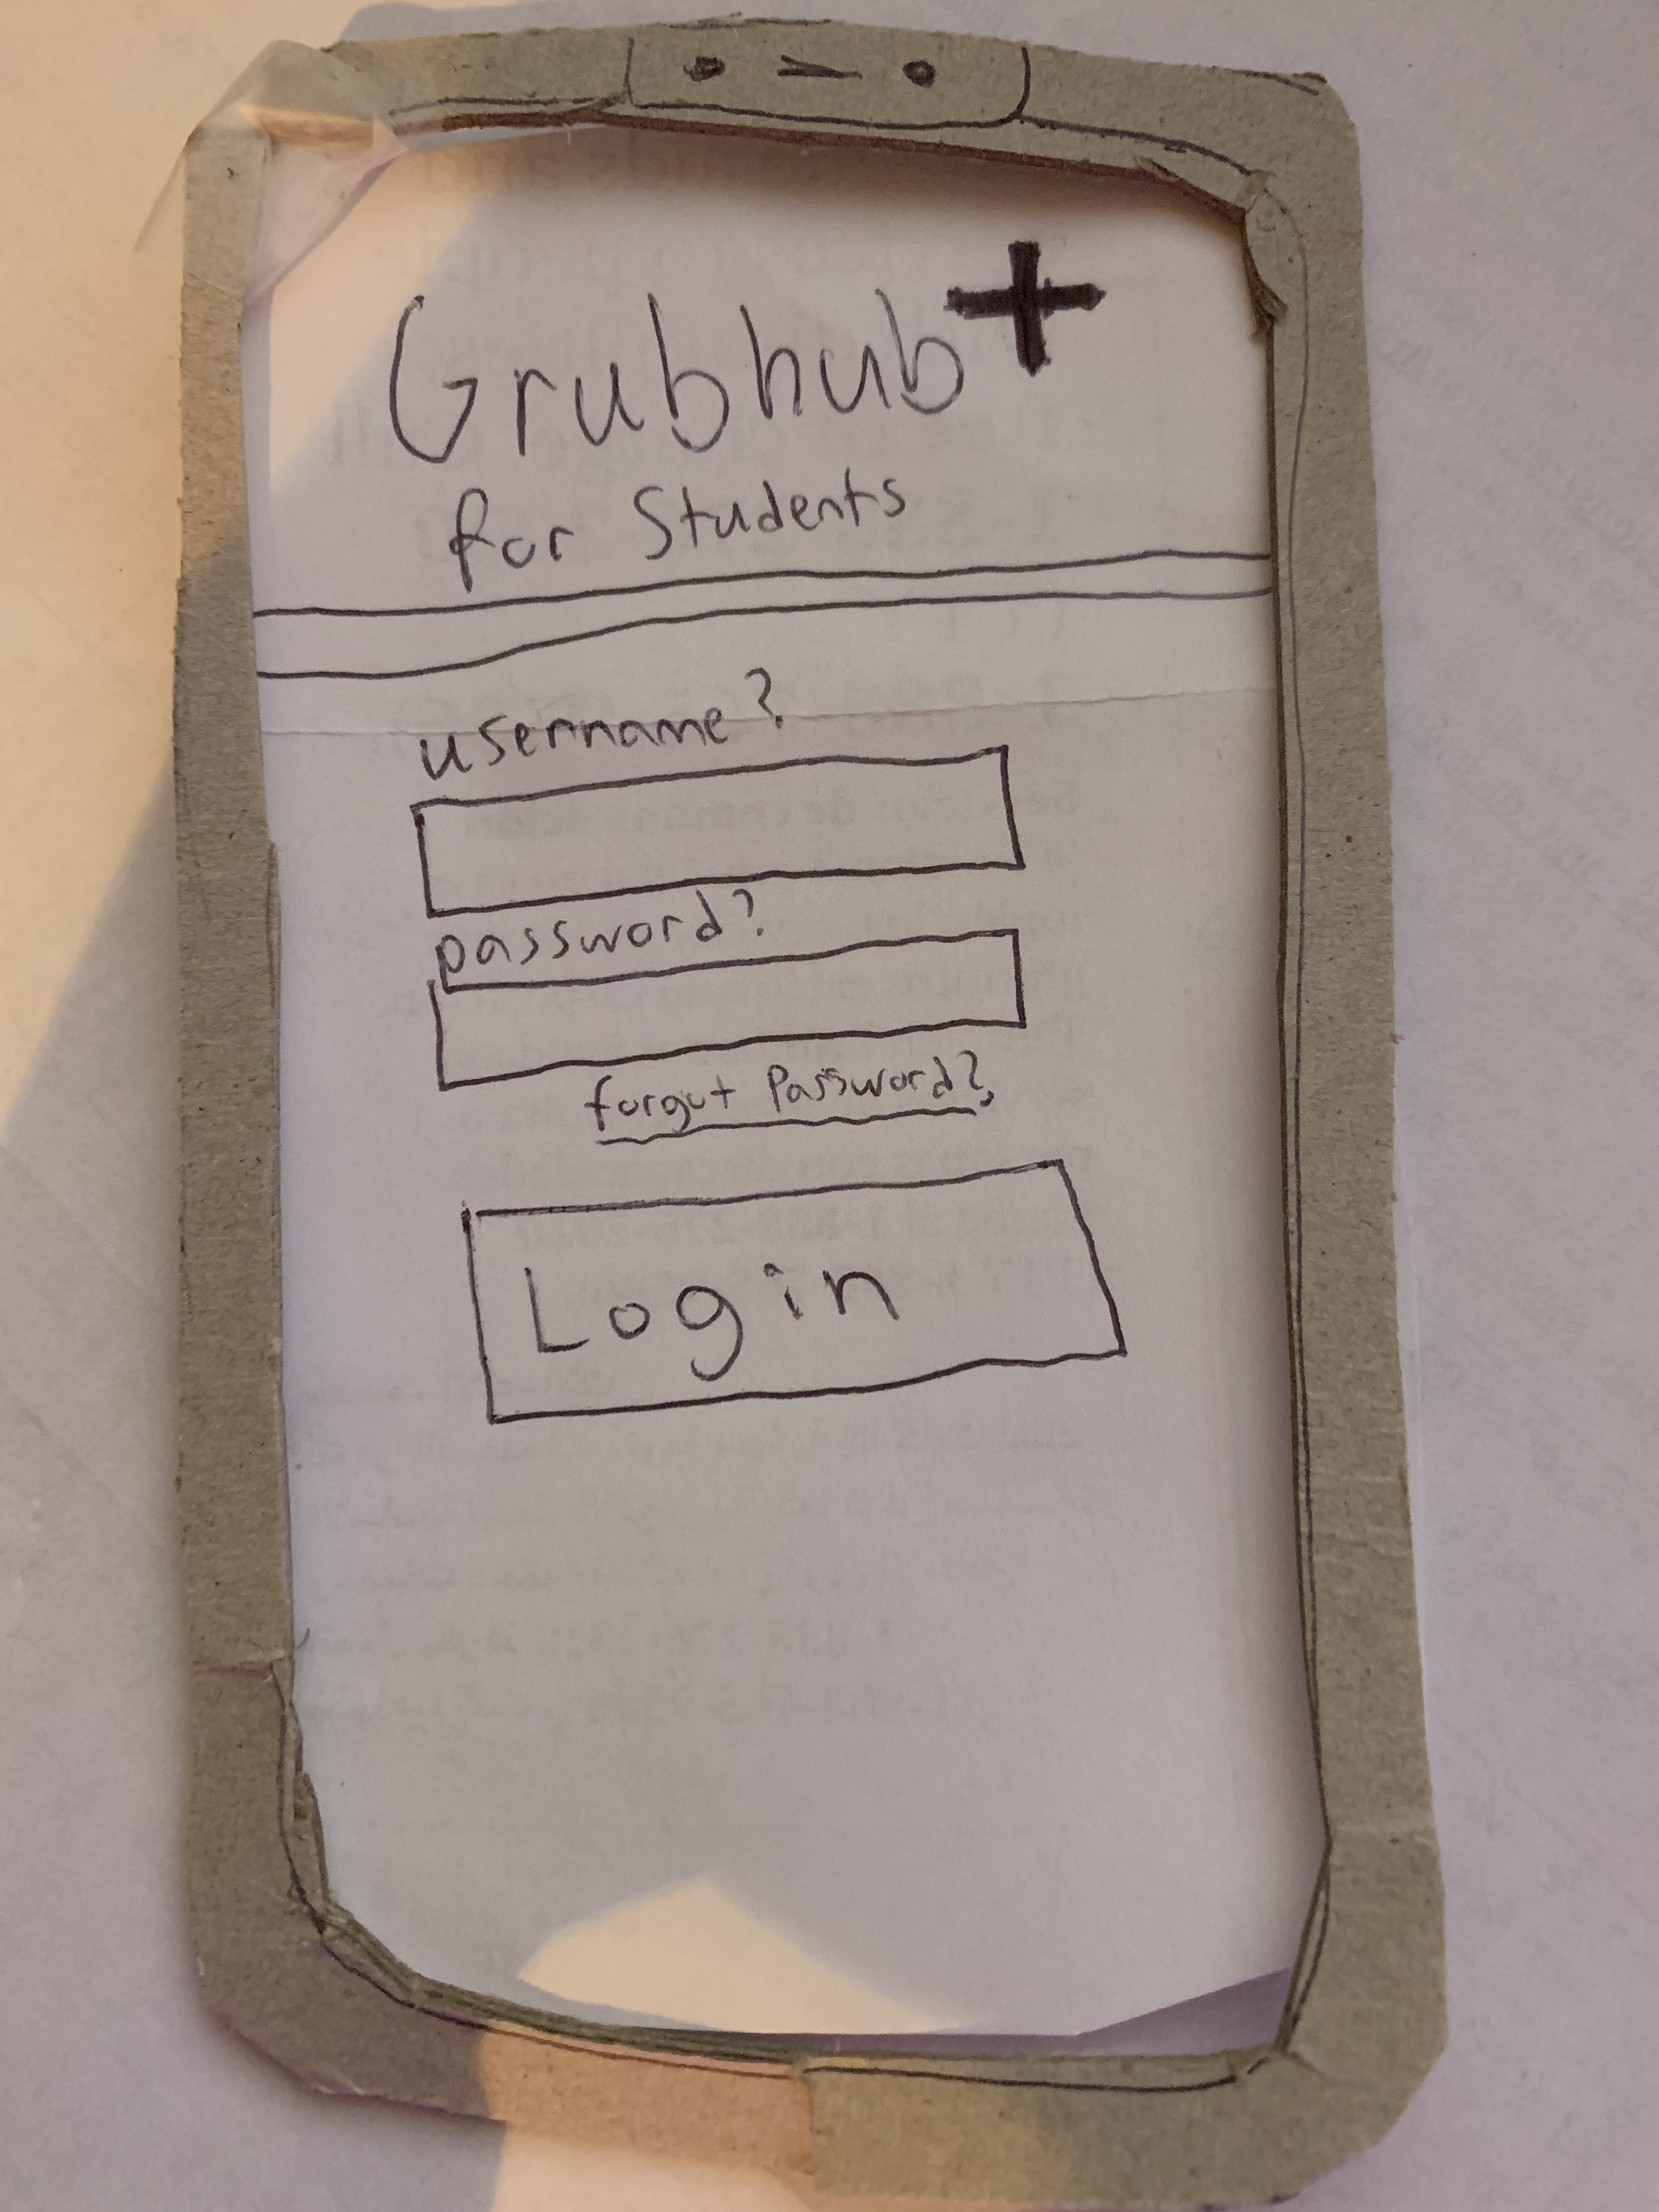 Grubhub+
for Students
username?
password?
forgot Password?
Login